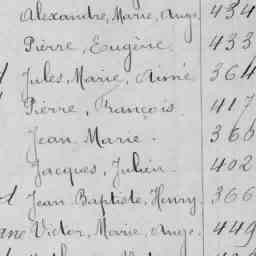 Alexandre, Marie, Ange. 434
Pierre, Eugène. 433
Jules, Marie, Aimé 364
Pierre, François. 417
Jean Marie. 366
Jacques, Julien. 402
Jean Baptiste, Henry. 366
Victor, Marie, Ange. 449